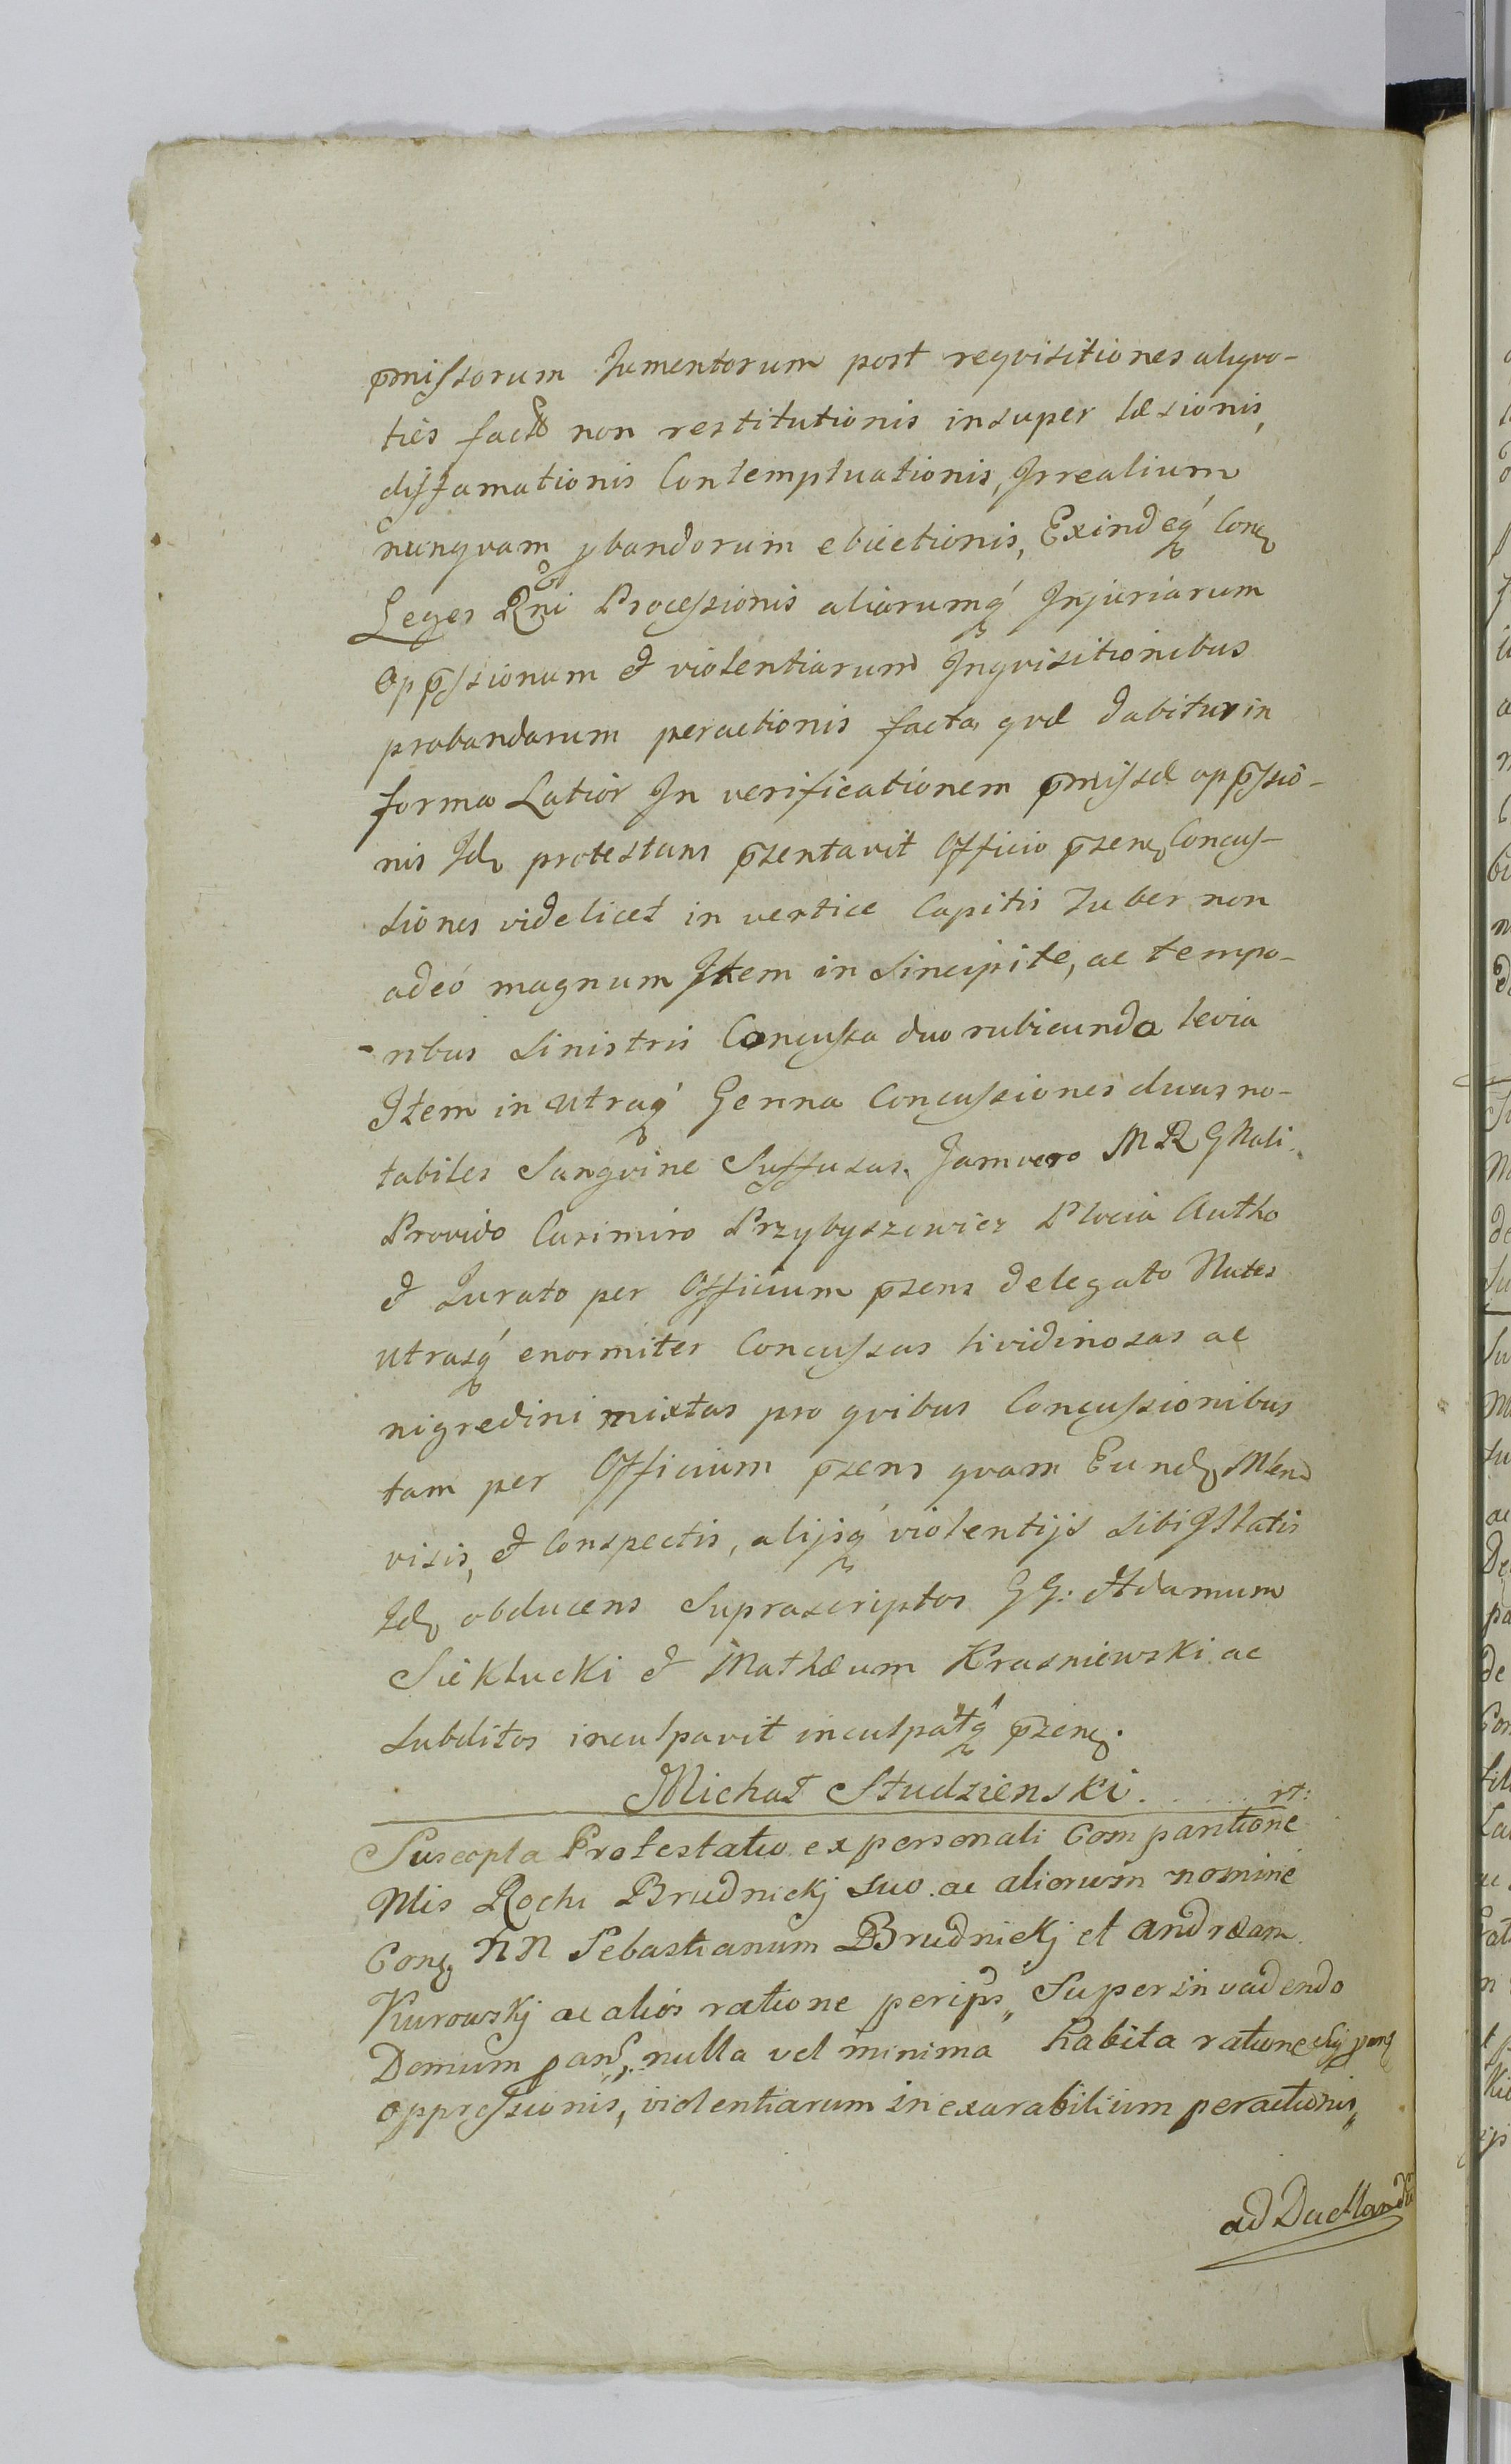 p̄missorum Jumentorum post reqvisitiones aliqvo-
ties factas non restitutionis insuper læsionis,
diffamationis Contemptuationis, Irrealium
nunqvam pbandorum ebiectionis, Exindeq́ Con
Leges Rni Processionis aliarumq́ Injuriarum
opp̄ssionum & violentiarum Inqvisitionibus
probandarum peractionis facta, qvæ dabitur in
forma Latior In verificationem p̄missæ opp̄ssio-
nis Id protestans p̄sentavit Officio p̄sen Concus-
siones videlicet in vertice Capitis Tuber non
adeó magnum Item in Sincipite, ac tempo-
-ribus Sinistris Concussa duo rubicunda levia
Item in utraq́ Genna Concussiones duas no-
tabiles Sangvine Suffusas. Jamvero MR GNali
Provido Casimiro Przybyszewicz Plocia Autho
& Jurato per Officium p̄sens delegato Nates
utrasq́ enormiter Concussas lividinosas ac
nigredini mixtas pro qvibus Concussionibus
tam per Officium p̄sens qvam Eund Men
visis, & Conspectis, alijsq́ violentijs sibi Illatis
Id obducens Suprascriptos GG: Adamum
Siekłucki & Mathæum Krasniewski ac
Subditos inculpavit inculpatq́ p̄sen.
Michał Studzienski . . . . . rt:
Suscepta Protestatio ex personali Comparitione
Nlis Rochi Brudnickj suo ac aliorum nomine
Con NN Sebastianum Brudnickj et Andræam
Kurowskj ac aliós ratione perips Superinvadendo
Domum pan, nulla vel minima habita ratione
oppressionis, violentiarum inexarabilium peractionis,
ad Duellandu